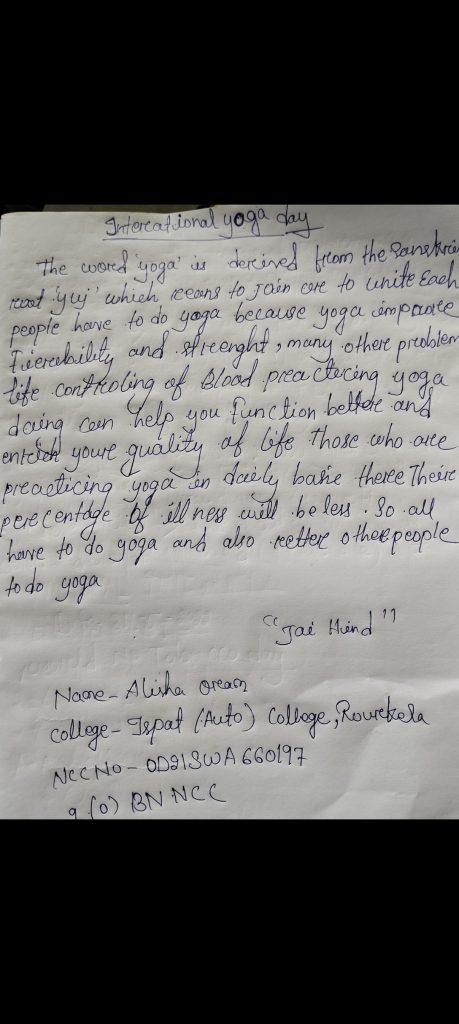 Intercational yoga day
The word 'yoga' is dercived from the Sanskrit
root 'yuj' which reeans to join ore to unite Each
people have to do yoga because yoga imparove
and streenght, many othere problem
life controling of Blood preactering yoga
doing can help you function better and
enrich youre quality of life Those who are
preacticing yoga in daily basie there Their
perecentage of illness will be less. So all
have to do yoga and also other people
to do yoga
"Jai Hind"
Name- Alisha Oram
College- Ispat (Auto) College, Rourkela
NCC No- OD21SWA660197
9 (O) BN NCC